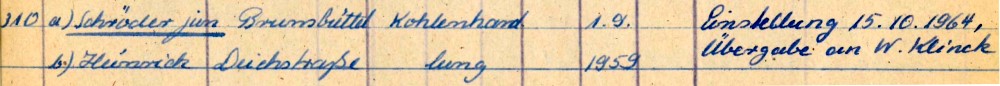 310 a) Schröder jun Brunsbüttel Kohlenhand 1.9. Einstellung 15.10.1964,
b.) Heinrich Deichstraße lung 1959 Übergabe an W. Klinck